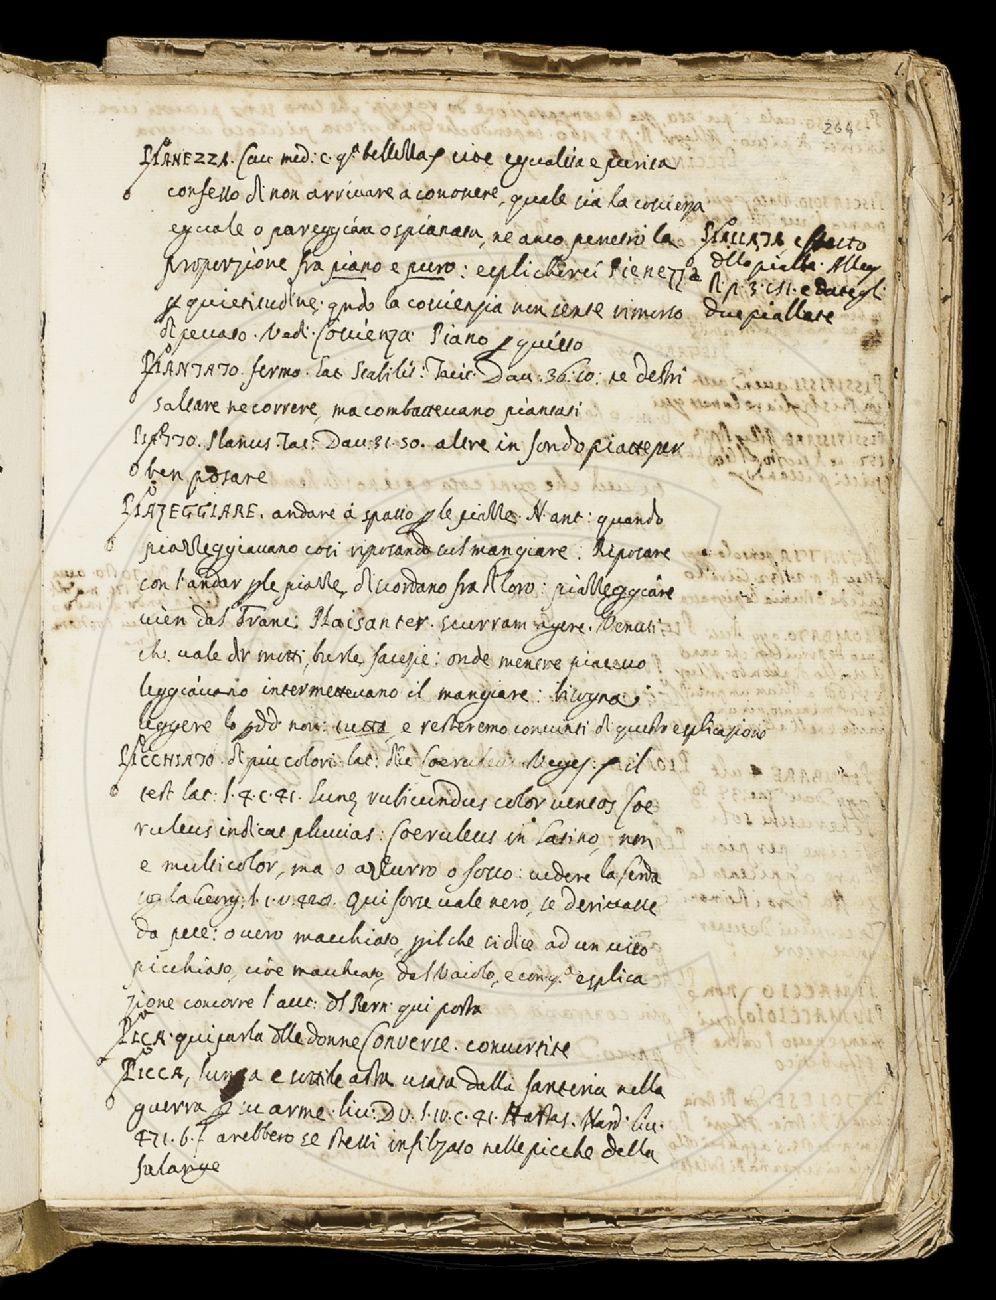 264
PIANEZZA. Cav. med: c. qᵃ bellellas cioe egualità e purità
confesso di non arrivare a conoscere, quale sia la coscienza
eguale o pareggiata o spianata, ne anco penetrò la
proporzione fra piano e puro: esplicherei Pienezza
p quietitudine; qndo la coscienzia non sente rimorso
di peccato. Vedi. Coscienza. Piano p quieto
PIANTATO. fermo. lat. Stabilis. Tacit. Dav. 36. 10: ne destri
saltare ne correre, ma combattevano piantati
PIATTO. Planus. Tac. Dav. 31. 50. altre in fondo piatte per
ben posare
PIAZEGGIARE. andare à spasso p le piazze. N ant: quando
piazzeggiavano cosi riposando sul mangiare. Riposare
con l'andar p le piazze, discordano fra di loro: piazzeggiare
vien dal Franc. Plaisanter. scurram agere. Venuti
che vale dir motti, burle, facezie: onde mentre piacevo
leggiavano intermettevano il mangiare: bisogna
leggere la pdd. nov: tutta, e resteremo convinti di questa esplicazione
PICCHIATO. di piu colori. lat: dice Coeruleus Veges. p il
test. lat. l. 4. c. 41. Lunę rubicundus color ventos Coe
ruleus indicat pluvias: Coeruleus in Latino, non
e multicolor, ma o azzurro o fosco: vedere la
la Georg: l. 1. v. 420. Qui forse vale nero, se derivasse
da pece: o vero macchiato, p il che si dice ad un viso
picchiato, cioe macchiato, dal Vaiolo, e con qᵃ esplica
zione concorre l'aut: dl Bern. qui posta
PICA. qui parla dlle donne Converse. convertite
PICCA, lunga e sottile asta usata dalla fanteria nella
guerra p sua arme. Liv: DV. l. IV. c. 41. Hastas. Nard. Liv.
471. 6. sarebbero se stelli infilzato nelle picche della
falange
PIALLATA effetto
dlla pialla. Alleg.
R. p. 3. e dategli
due piallate